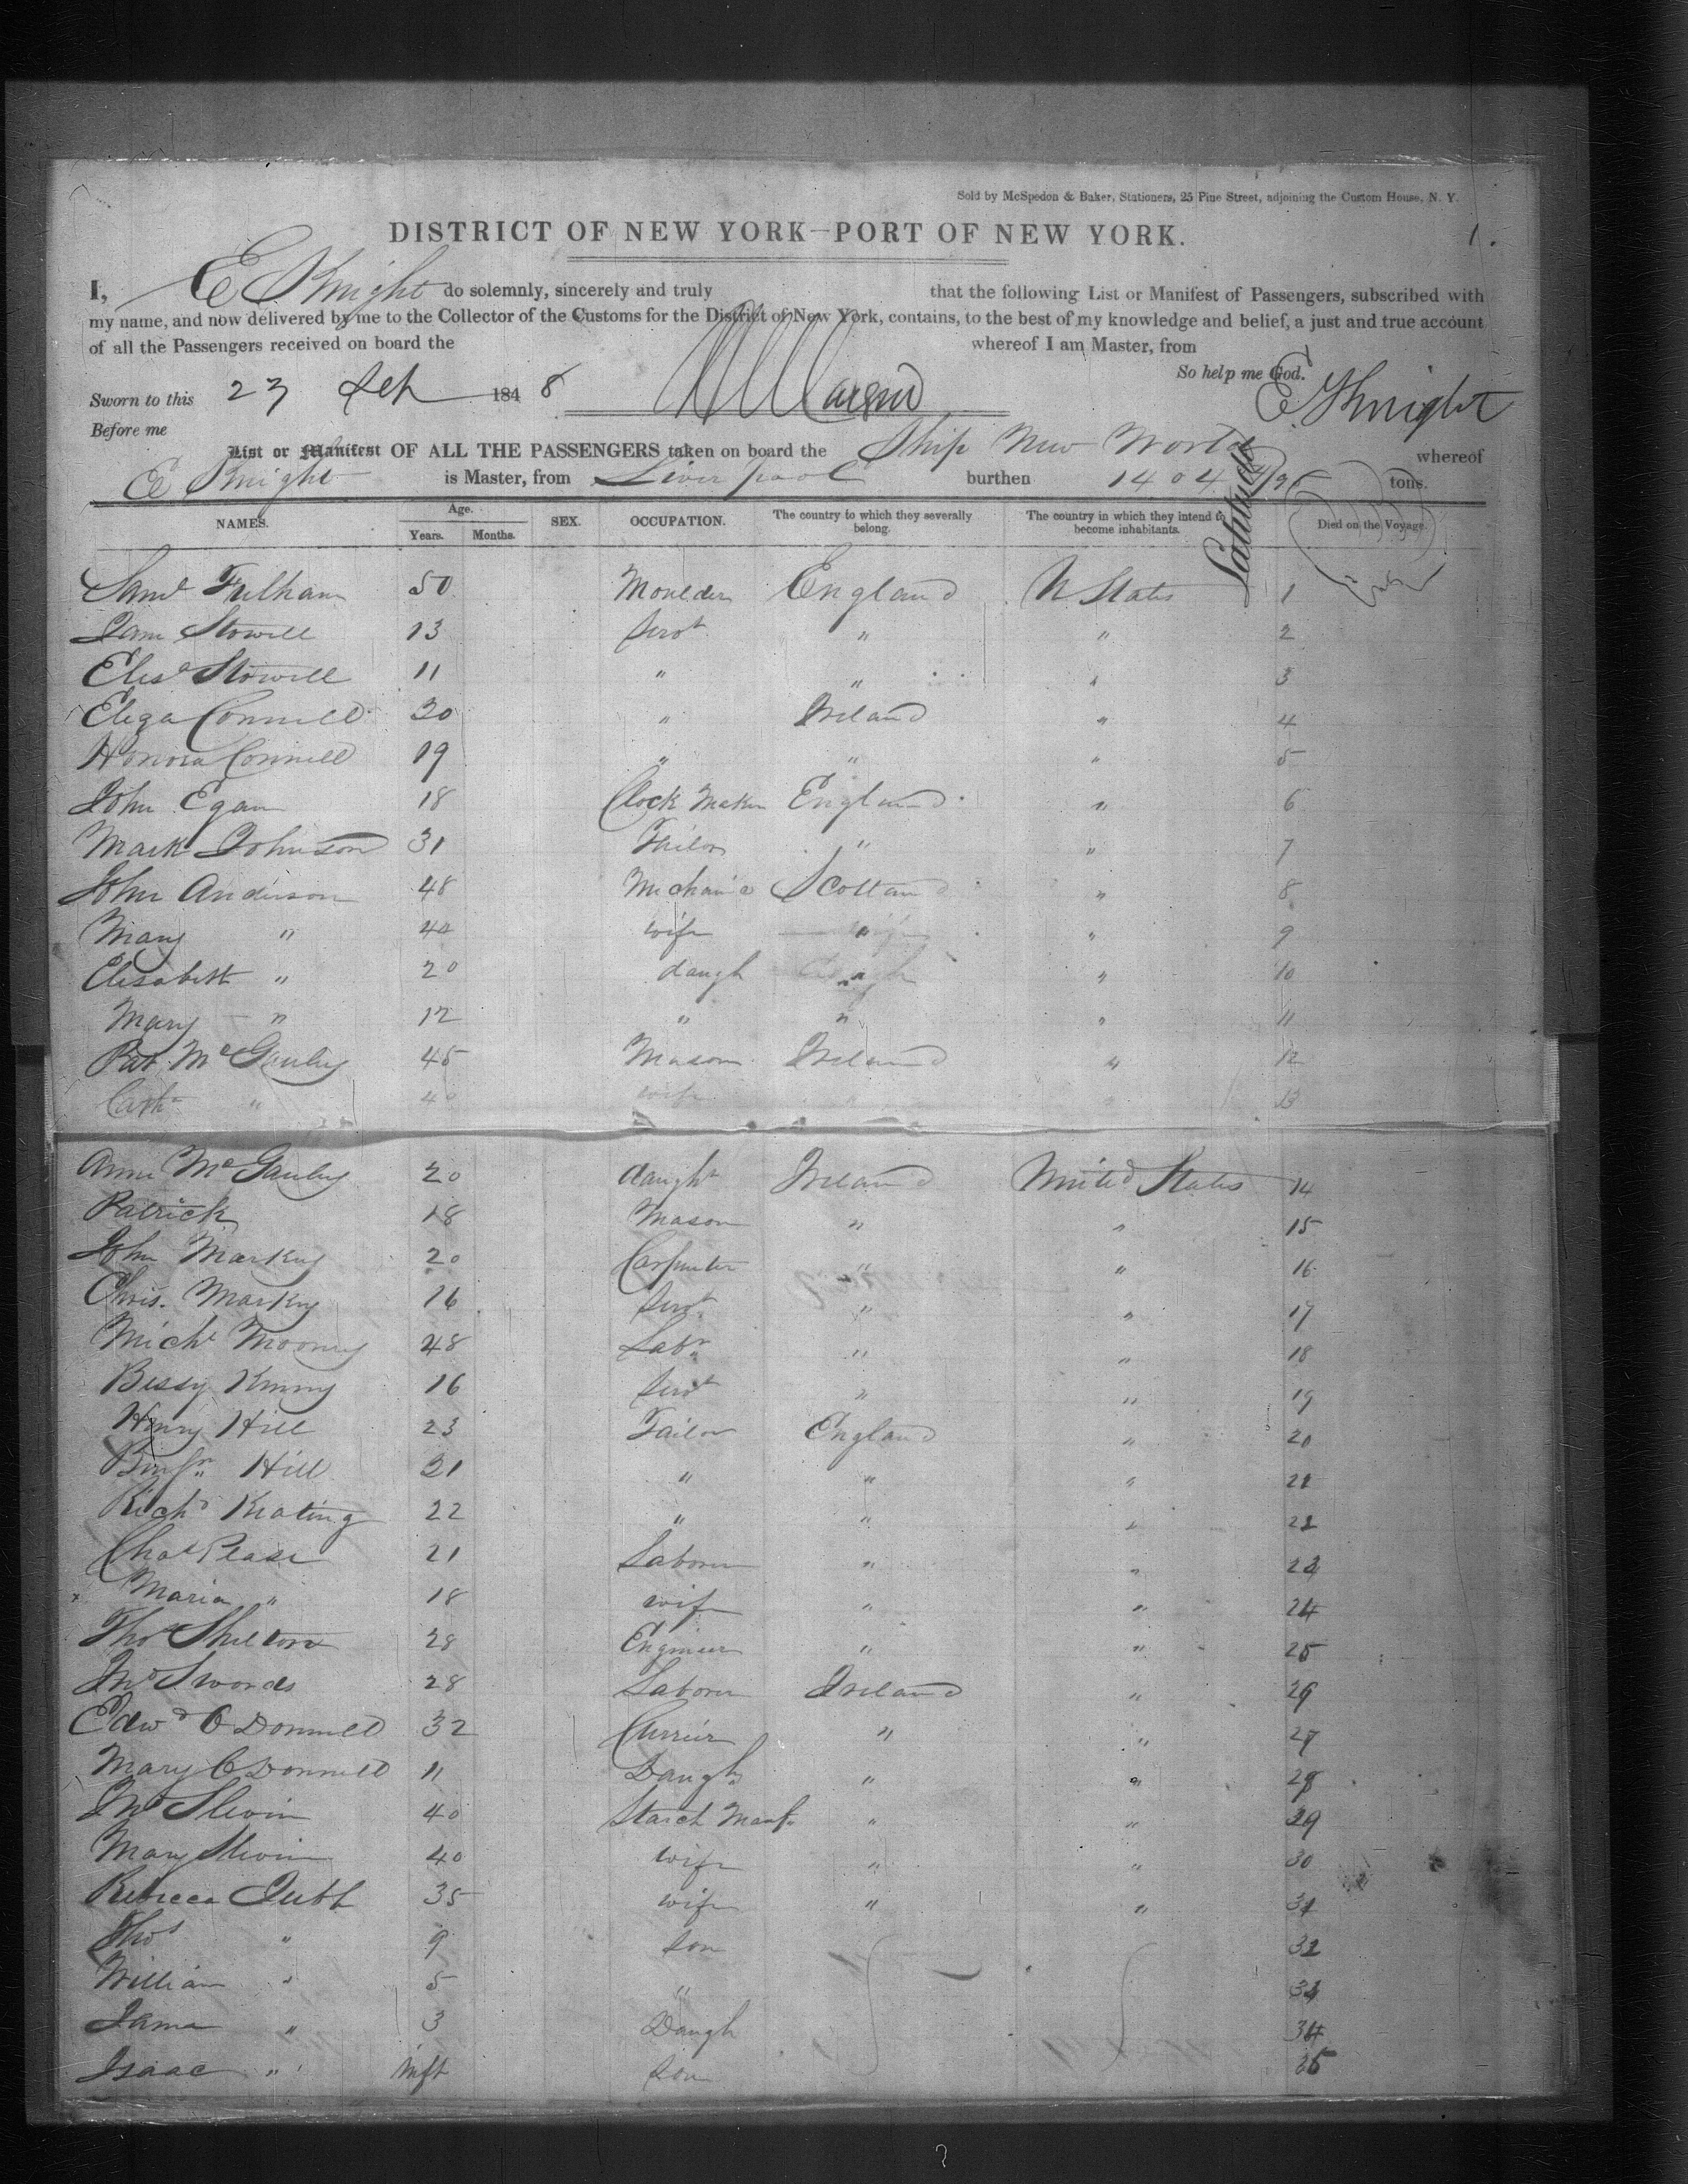 Sold by McSpedon & Baker, Stationers, 25 Pine Street, adjoining the Custom House, N. Y.
DISTRICT OF NEW YORK—PORT OF NEW YORK. 1.
I, E Knight do solemnly, sincerely and truly that the following List or Manifest of Passengers, subscribed with
my name, and now delivered by me to the Collector of the Customs for the District of New York, contains, to the best of my knowledge and belief, a just and true account
of all the Passengers received on board the whereof I am Master, from
So help me God.
Sworn to this 23 1848 E Knight
Before me
List or Manifest OF ALL THE PASSENGERS taken on board the Ship New World whereof
E Knight is Master, from Liverpool burthen 1404 /95 tons.
NAMES. Age. Years. Months. SEX. OCCUPATION. The country to which they severally belong. The country in which they intend to become inhabitants. Died on the Voyage.
Saml Fulham 50 Moulder England U States 1
Jane Stowell 13 Servt " " 2
Elisa Stowell 11 " " " 3
Eliza Connell 30 " Ireland " 4
Honora Connell 19 " " " 5
John Egan 18 Clock Maker England " 6
Mark Johnson 31 Tailor " " 7
John Anderson 48 Mechanic Scotland " 8
Mary " 40 wife " " 9
Elisabeth " 20 daugh " " 10
Mary " 12 " " " 11
Pat McGauley 45 Mason Ireland " 12
Cath " 40 wife " " 13
Anne McGauley 20 daught Ireland United States 14
Patrick 18 Mason " " 15
John Markey 20 Carpenter " " 16
Chris. Markey 16 Servt " " 17
Michl Mooney 48 Labr " " 18
Bessy Kenny 16 Servt " " 19
Henry Hill 23 Tailor England " 20
Benjn Hill 21 " " " 21
Richd Keating 22 " " " 22
Chas Pease 21 Laborer " " 23
Maria " 18 wife " " 24
Thos Shelton 28 Engineer " " 25
Jno Swords 28 Laborer Ireland " 26
Edwd O Donnell 32 Currier " " 27
Mary O Donnell 11 Daugh " " 28
Jno Slevin 40 Starch Manf. " " 29
Mary Slevin 40 wife " " 30
Rebecca Jubb 35 wife " " 31
Thos " 9 son 32
William " 5 " 33
Jane " 3 Daugh 34
Isaac " inft son 35